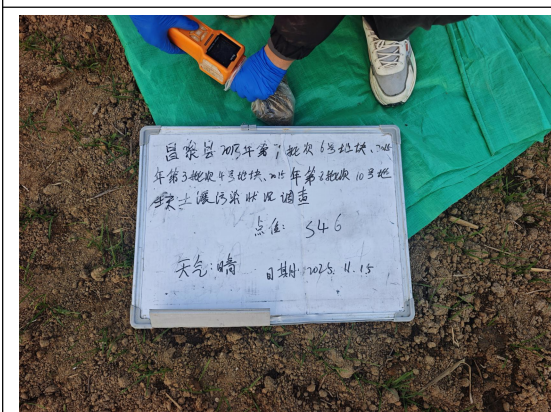 昌黎县2015年第1批次6号地块、2015
年第3批次4号地块、2015年第3批次10号地
块土壤污染状况调查
点位: S46
天气:晴 日期: 2025.11.15